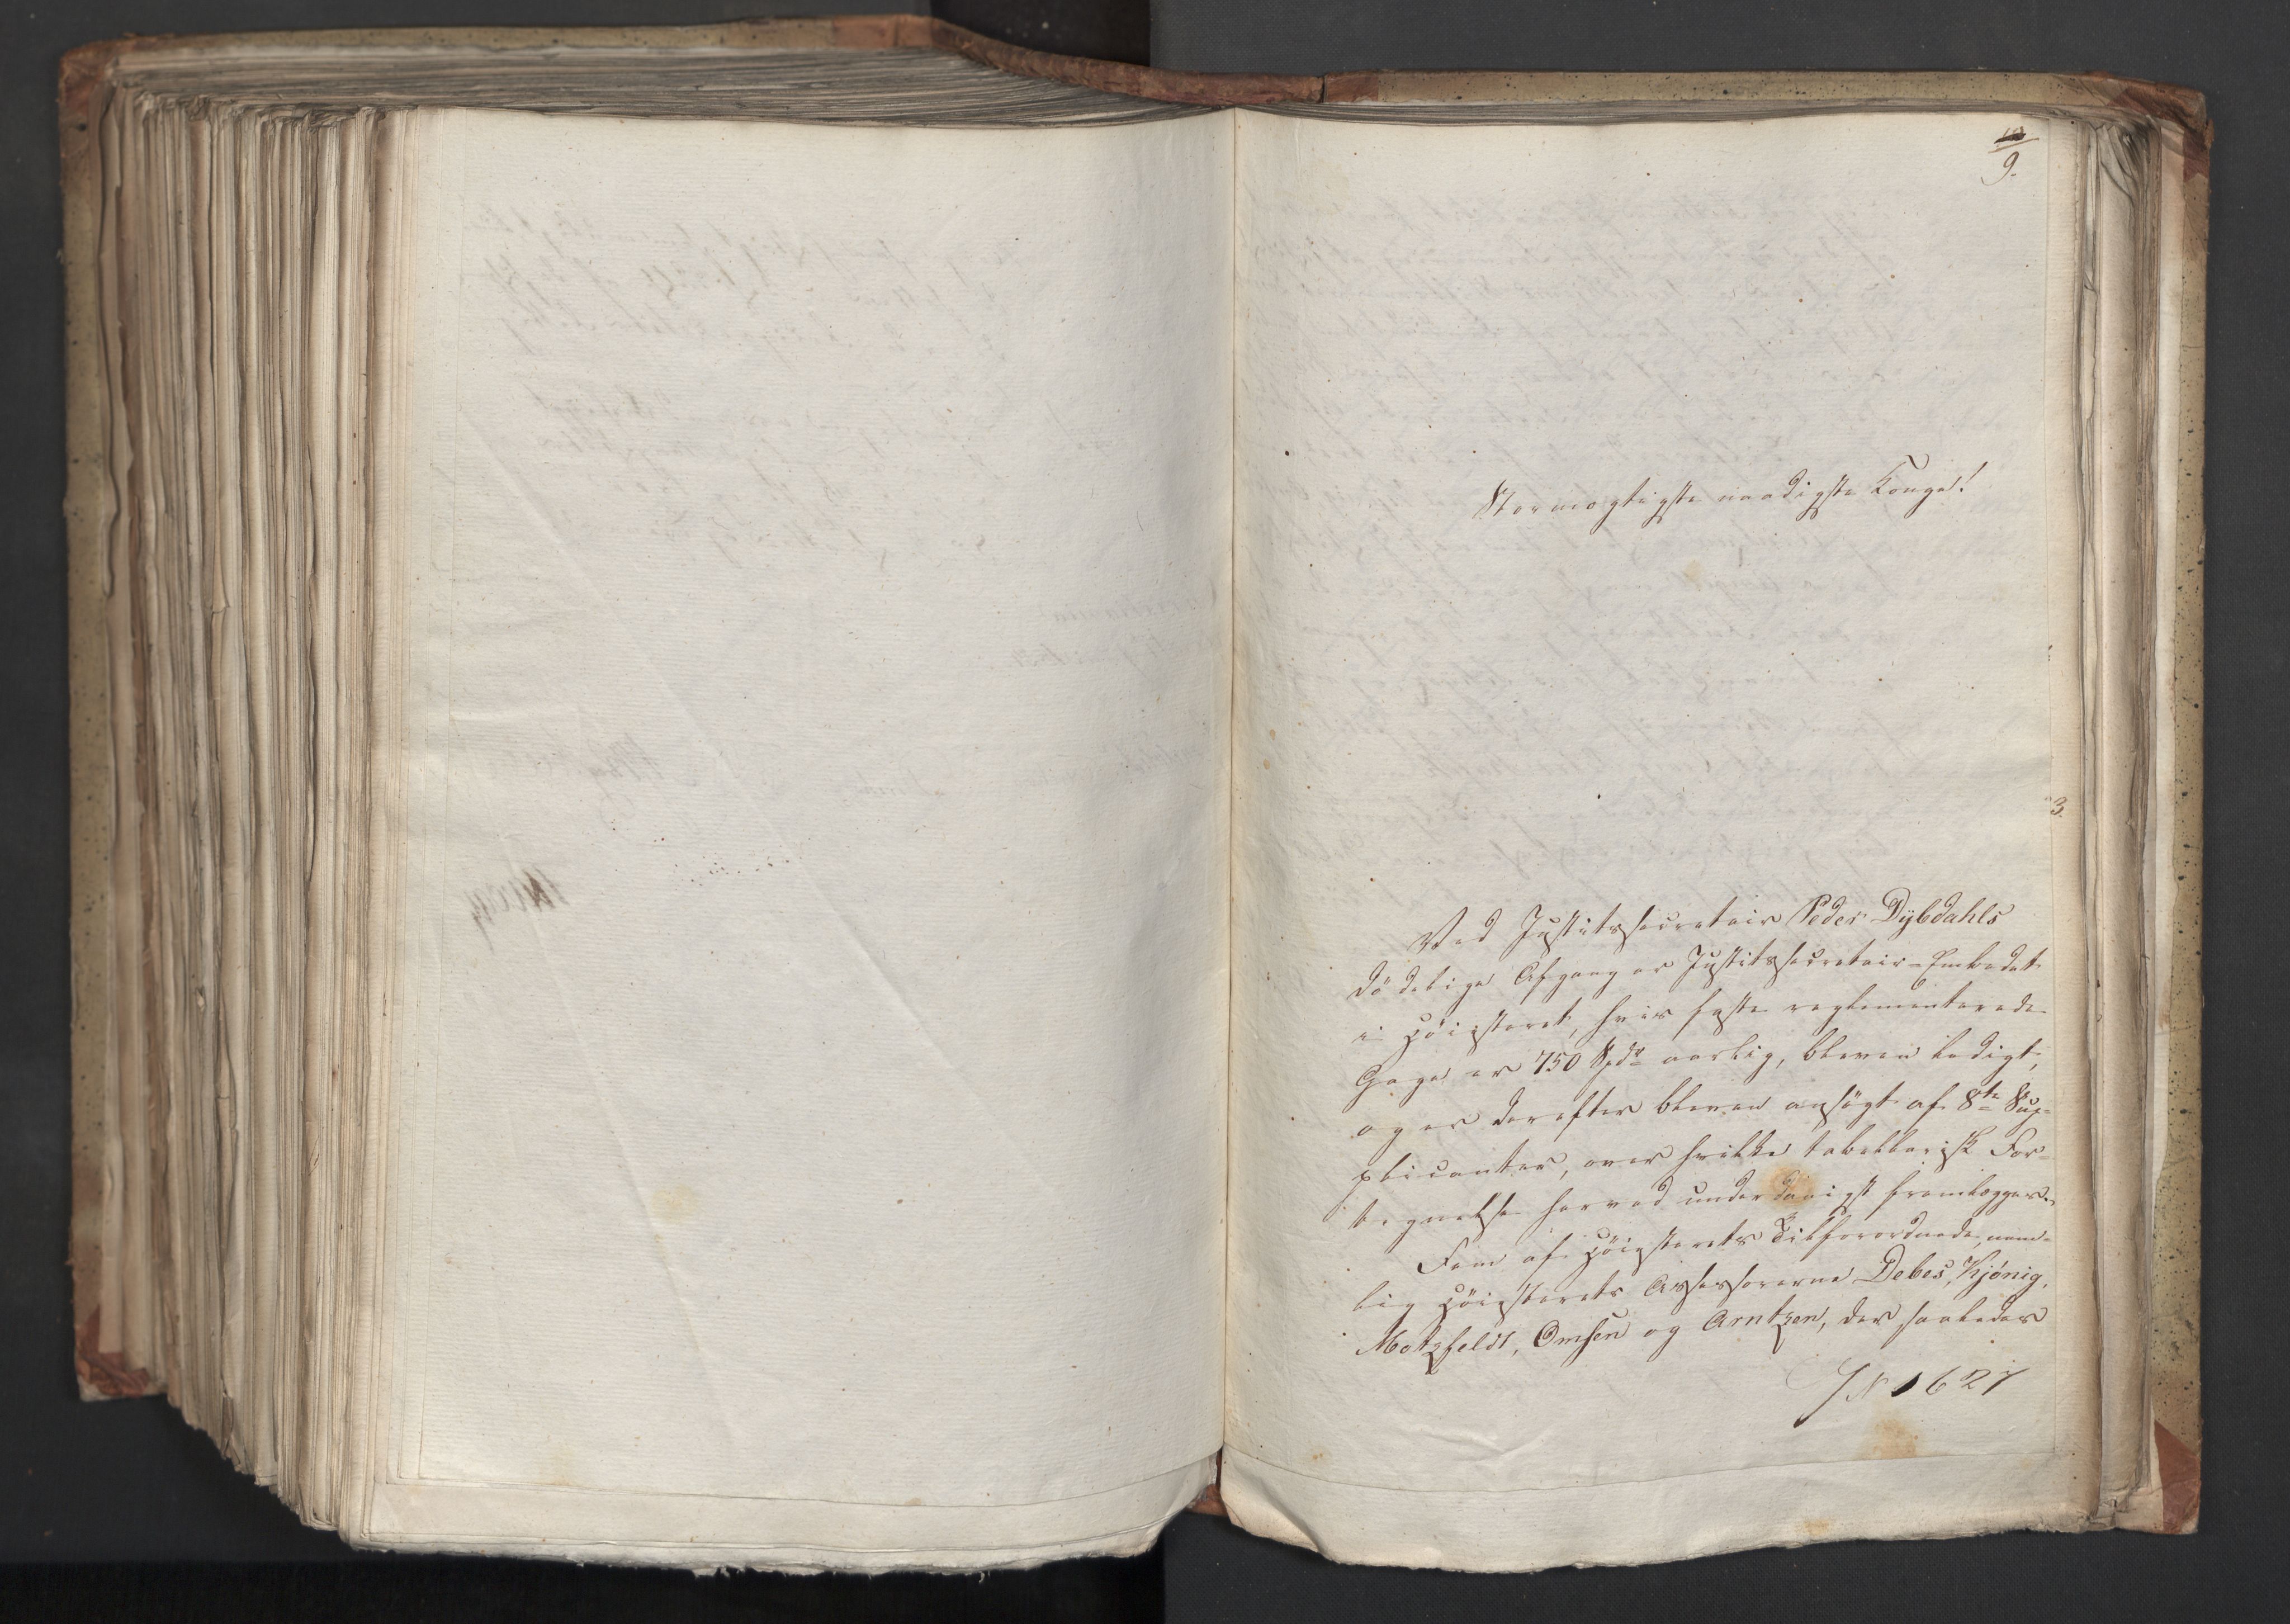 9.
Stormægtigste naadigste Konge!
3
Ved Justitssecretair Peder Dybdahls
dödelige Afgang er Justitssecretair-Embedet
i Höiesteret, hvis faste reglementerede
Gage er 750 Spd aarlig, bleven ledigt,
og er derefter bleven ansögt af 8te Sup-
plicanter, over hvilke tabellarisk For-
tegnelse herved underdanigst fremlægges.
Fem af Höiesterets Tilforordnede, nem-
lig Höiesterets Assessorerne Debes, Kjönig,
Motzfeldt, Omsen og Arntzen, der saaledes
JN 1627